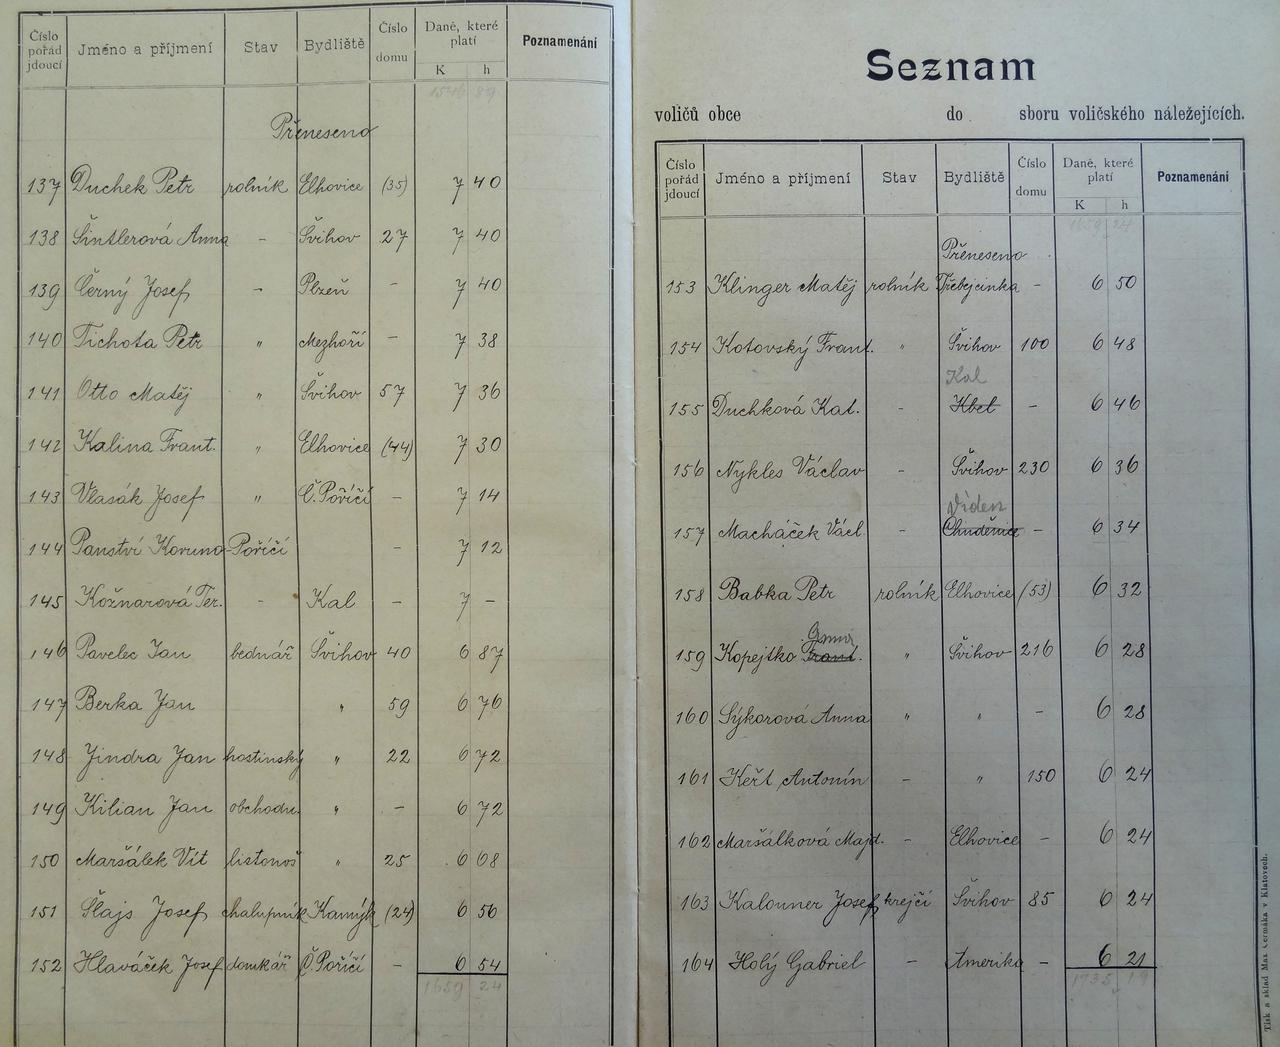 Číslo pořád jdoucí Jméno a příjmení Stav Bydliště Číslo domu Daně, které platí K h Poznamenání
1546 89
Přeneseno
137 Duchek Petr rolník Elhovice (35) 7 40
138 Šintlerová Anna - Švihov 27 7 40
139 Černý Josef - Plzeň - 7 40
140 Tichota Petr " Mezhoří - 7 38
141 Otto Matěj " Švihov 57 7 36
142 Kalina Frant. " Elhovice (44) 7 30
143 Vlasák Josef " Č. Poříčí - 7 14
144 Panství Koruno-Poříčí - 7 12
145 Kožnarová Ter. - Kal - 7 -
146 Pavelec Jan bednář Švihov 40 6 87
147 Berka Jan " 59 6 76
148 Jindra Jan hostinský " 22 6 72
149 Kilian Jan obchodn. " - 6 72
150 Maršálek Vít listonoš " 25 6 68
151 Šlajs Josef chalupník Kamýk (24) 6 56
152 Hlaváček Josef domkář Č. Poříčí - 6 54
1659 24
Seznam
voličů obce do sboru voličského náležejících.
Číslo pořád jdoucí Jméno a příjmení Stav Bydliště Číslo domu Daně, které platí K h Poznamenání
1659 24
Přeneseno
153 Klinger Matěj rolník Třebejcinka - 6 50
154 Kotovský Frant. " Švihov 100 6 48
Kal
155 Duchková Kat. - Kbel - 6 46
156 Nykles Václav - Švihov 230 6 36
Víden
157 Macháček Václ. - Chudenice - 6 34
158 Babka Petr rolník Elhovice (53) 6 32
159 Kopejtko Frant. " Švihov 216 6 28
160 Sýkorová Anna " " - 6 28
161 Keřt Antonín - " 150 6 24
162 Maršálková Majd. - Elhovice - 6 24
163 Kalouner Josef krejčí Švihov 85 6 24
164 Holý Gabriel - Amerika - 6 21
1735 19
Tisk a sklad Max. Čermáka v Klatovech.